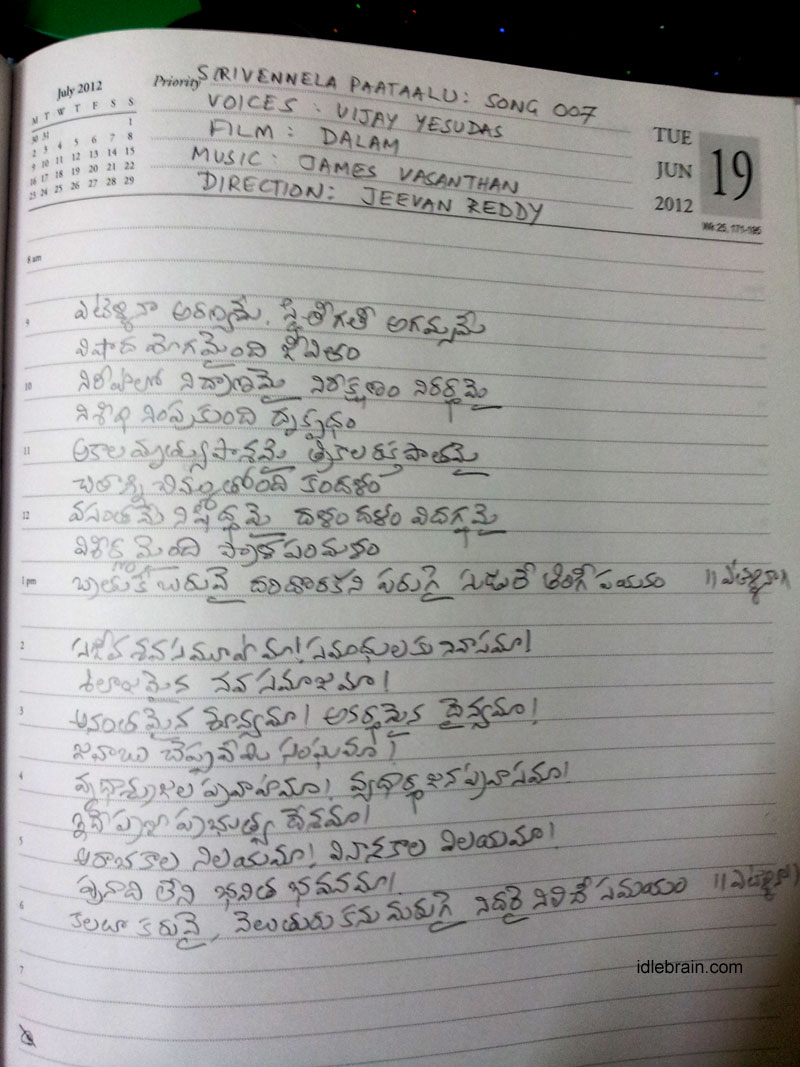 July 2012
M T W T F S S
1
30 31
2 3 4 5 6 7 8
9 10 11 12 13 14 15
16 17 18 19 20 21 22
23 24 25 26 27 28 29
Priority SIRIVENNELA PAATAALU: SONG 007
VOICES : VIJAY YESUDAS
FILM : DALAM
MUSIC : JAMES VASANTHAN
DIRECTION: JEEVAN REDDY
TUE
JUN
2012
19
Wk 25, 171-195
8 am
9 ఎటెళ్ళినా అరణ్యమే, స్థితీగతీ అగమ్యమే
విషాద యోగమైంది జీవితం
10 నిరీక్షణం నిరర్థమై
నిశీధి నింపుకుంది దృక్పథం
11 అకాల మృత్యుపాశమై త్రికాల రక్తపాతమై
కందళం
12 వసంతమే నిషిద్ధమై దళం దళం విదగ్ధమై
విశీర్ణమైంది
1 pm బ్రతుకే బరువై దరి దొరకని పరుగై సుడిలో తిరిగే పయనం ||ఎటెళ్ళినా||
2 సజీవ శవ సమూహమా! సమాధులకు నివాసమా!
శిలాజమైన నవ సమాజమా!
3 అనంతమైన శూన్యమా! అకర్మమైన దైన్యమా!
జవాబు చెప్పవేమి సంఘమా!
4 వృధాశ్రుజల ప్రవాహమా! వ్యధార్థ జన ప్రవాసమా!
ఇదే ప్రజా ప్రభుత్వ దేశమా!
5 అరాచకాల నిలయమా! వినాశకాల విలయమా!
పునాది లేని భవిత భవనమా!
6 కలలా కరువై, వెలుతురు కనుమరుగై నిదరై నిలిచే సమయం ||ఎటెళ్ళినా||
7
idlebrain.com